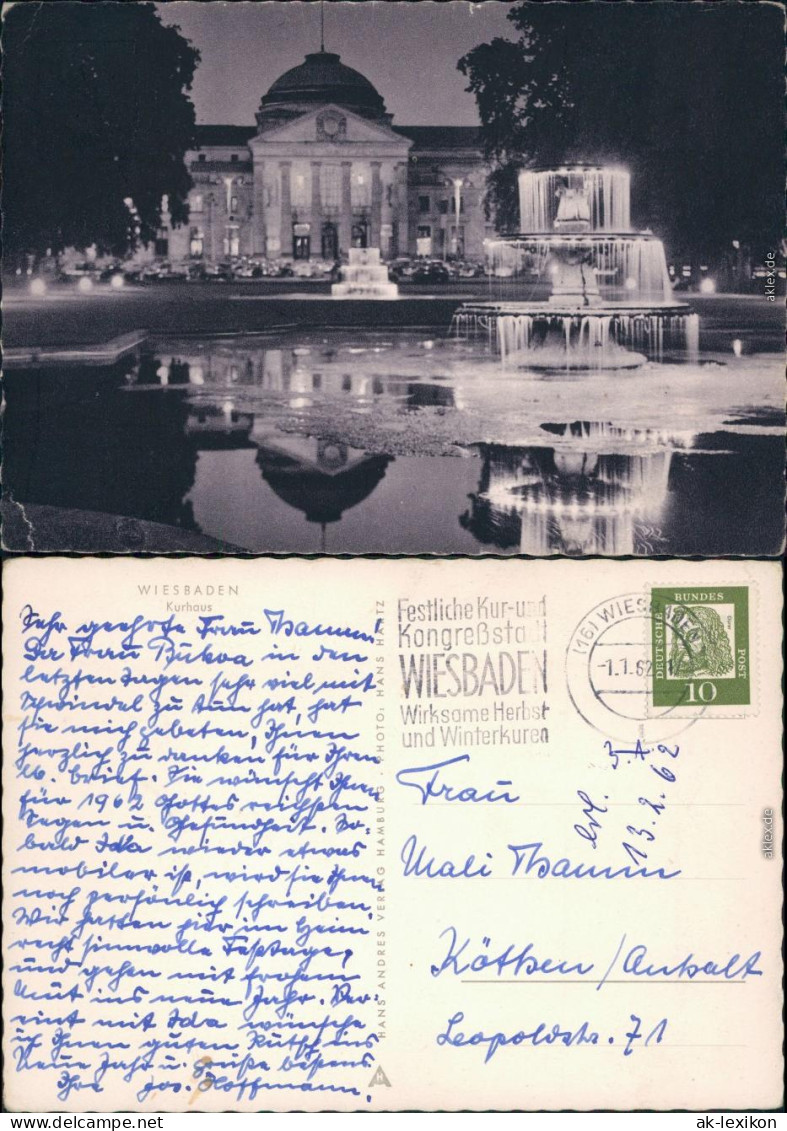 aklex.de
WIESBADEN
Kurhaus
Sehr geehrte Frau Thamm!
Da Frau in den
letzten Tagen sehr viel mit
Schwindel zu tun hat, hat
sie mich gebeten, Ihnen
herzlich zu danken für Ihren
lb. Brief. Sie wünscht Ihnen
für 1962 Gottes reichsten
Segen u. Gesundheit. So-
bald Ida wieder etwas
mobiler ist, wird sie Ihnen
noch persönlich schreiben.
Wir hatten hier im Heim
recht sinnvolle Festtage,
und gehen mit frohem
Mut ins neue Jahr. Ver-
eint mit Ida wünsche
ich Ihnen guten Rutsch ins
Neue Jahr u. grüße bestens
Ihre Jos. Hoffmann.
HANS ANDRES VERLAG HAMBURG · PHOTO: HANS HARTZ
Festliche Kur- und
Kongreßstadt
WIESBADEN
Wirksame Herbst
und Winterkuren
(16) WIESBADEN
-1.1.62
DEUTSCHE BUNDES POST
10
3.
erl. 13.2.62
Frau
Mali Thamm
Köthen/Anhalt
Leopoldstr. 71
aklex.de
ak-lexikon